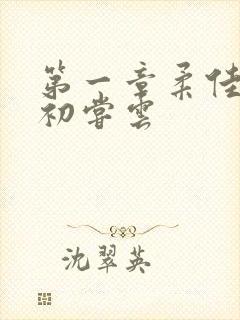 第一章柔佳
初尝云
沈翠英